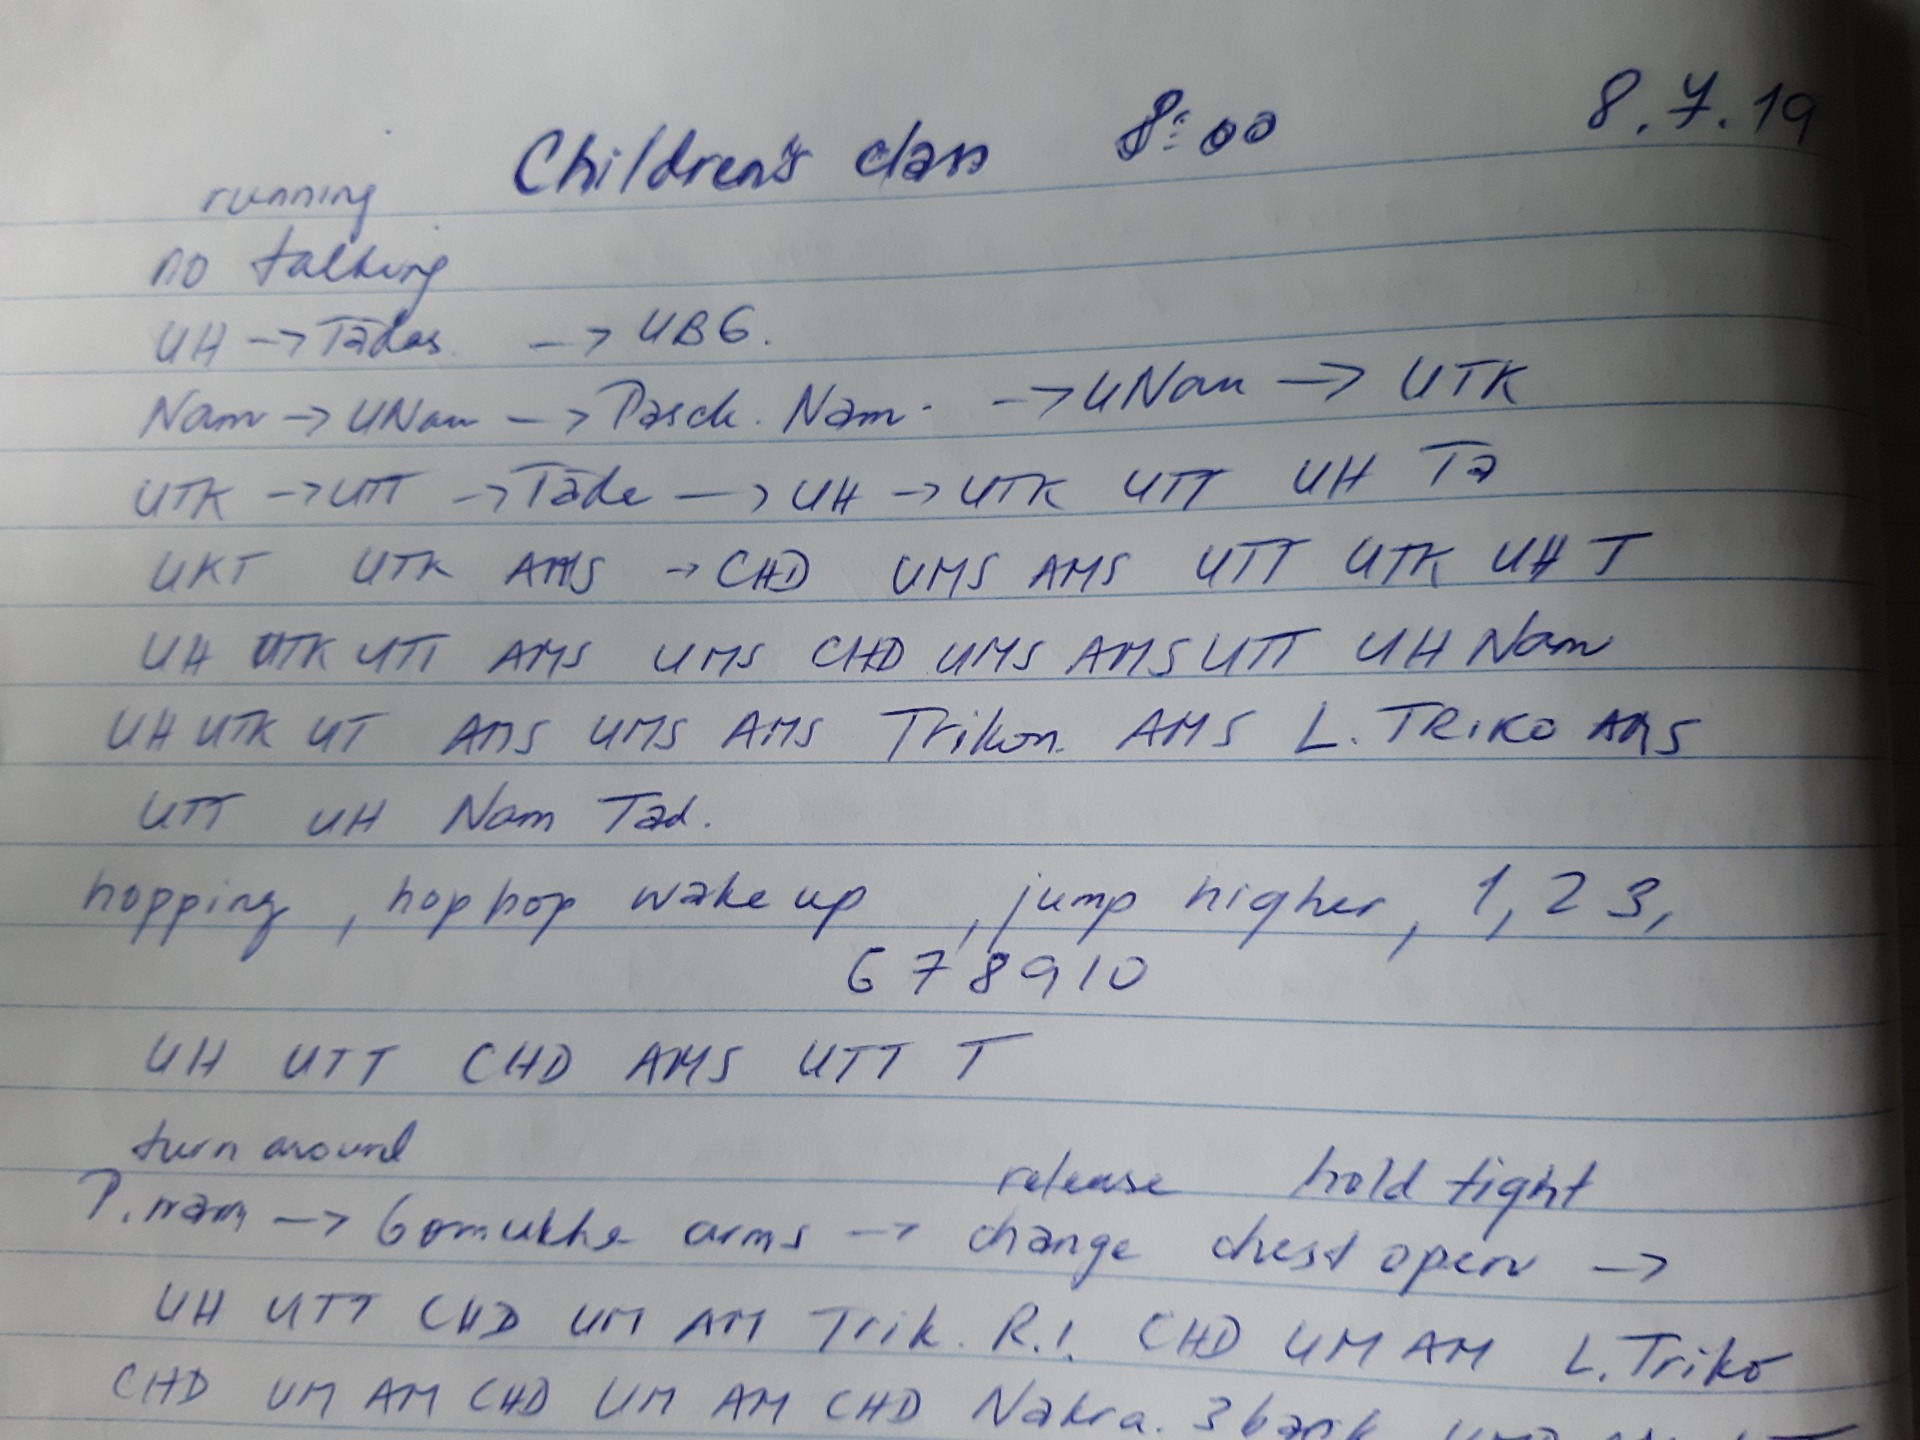 Children's class 8:00 8.7.19
running
no talking
UH → Tādas. → UBG.
Nam → UNam → Pasch. Nam. → UNam → UTK
UTK → UTT → Tāde → UH → UTK UTT UH Ta
UKT UTK AMS → CHD UMS AMS UTT UTK UH T
UH UTK UTT AMS UMS CHD UMS AMS UTT UH Nam
UH UTK UT AMS UMS AMS Trikon. AMS L. TRIKO AMS
UTT UH Nam Tad.
hopping, hop hop wake up, jump higher, 1, 2 3,
6 7 8 9 10
UH UTT CHD AMS UTT T
turn around
release hold tight
P. nam → Gomukha arms → change chest open →
UH UTT CHD UM AM Trik. R.! CHD UM AM L. Triko
CHD UM AM CHD UM AM CHD Nakra. 3